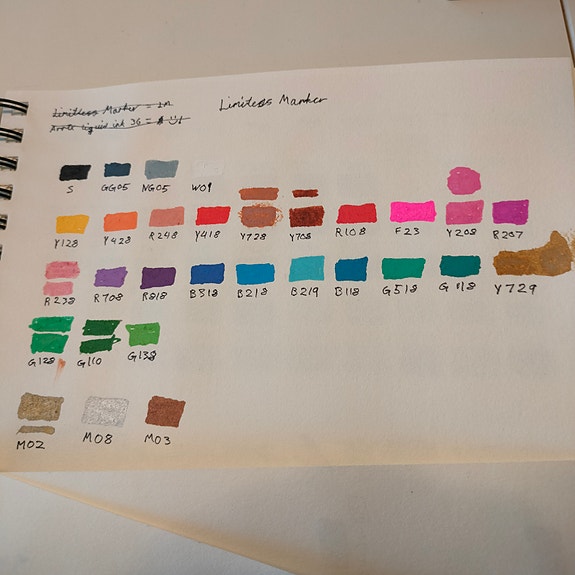 Limitless Marker = 1M
Arrta liquid ink 36 =
Limitless Marker
S GG05 NG05 W01
Y128 Y428 R248 Y418 Y728 Y708 R108 F23 Y208 B207
R238 R708 R818 B318 B218 B219 B118 G518 G118 Y729
G128 G110 G138
M02 M08 M03